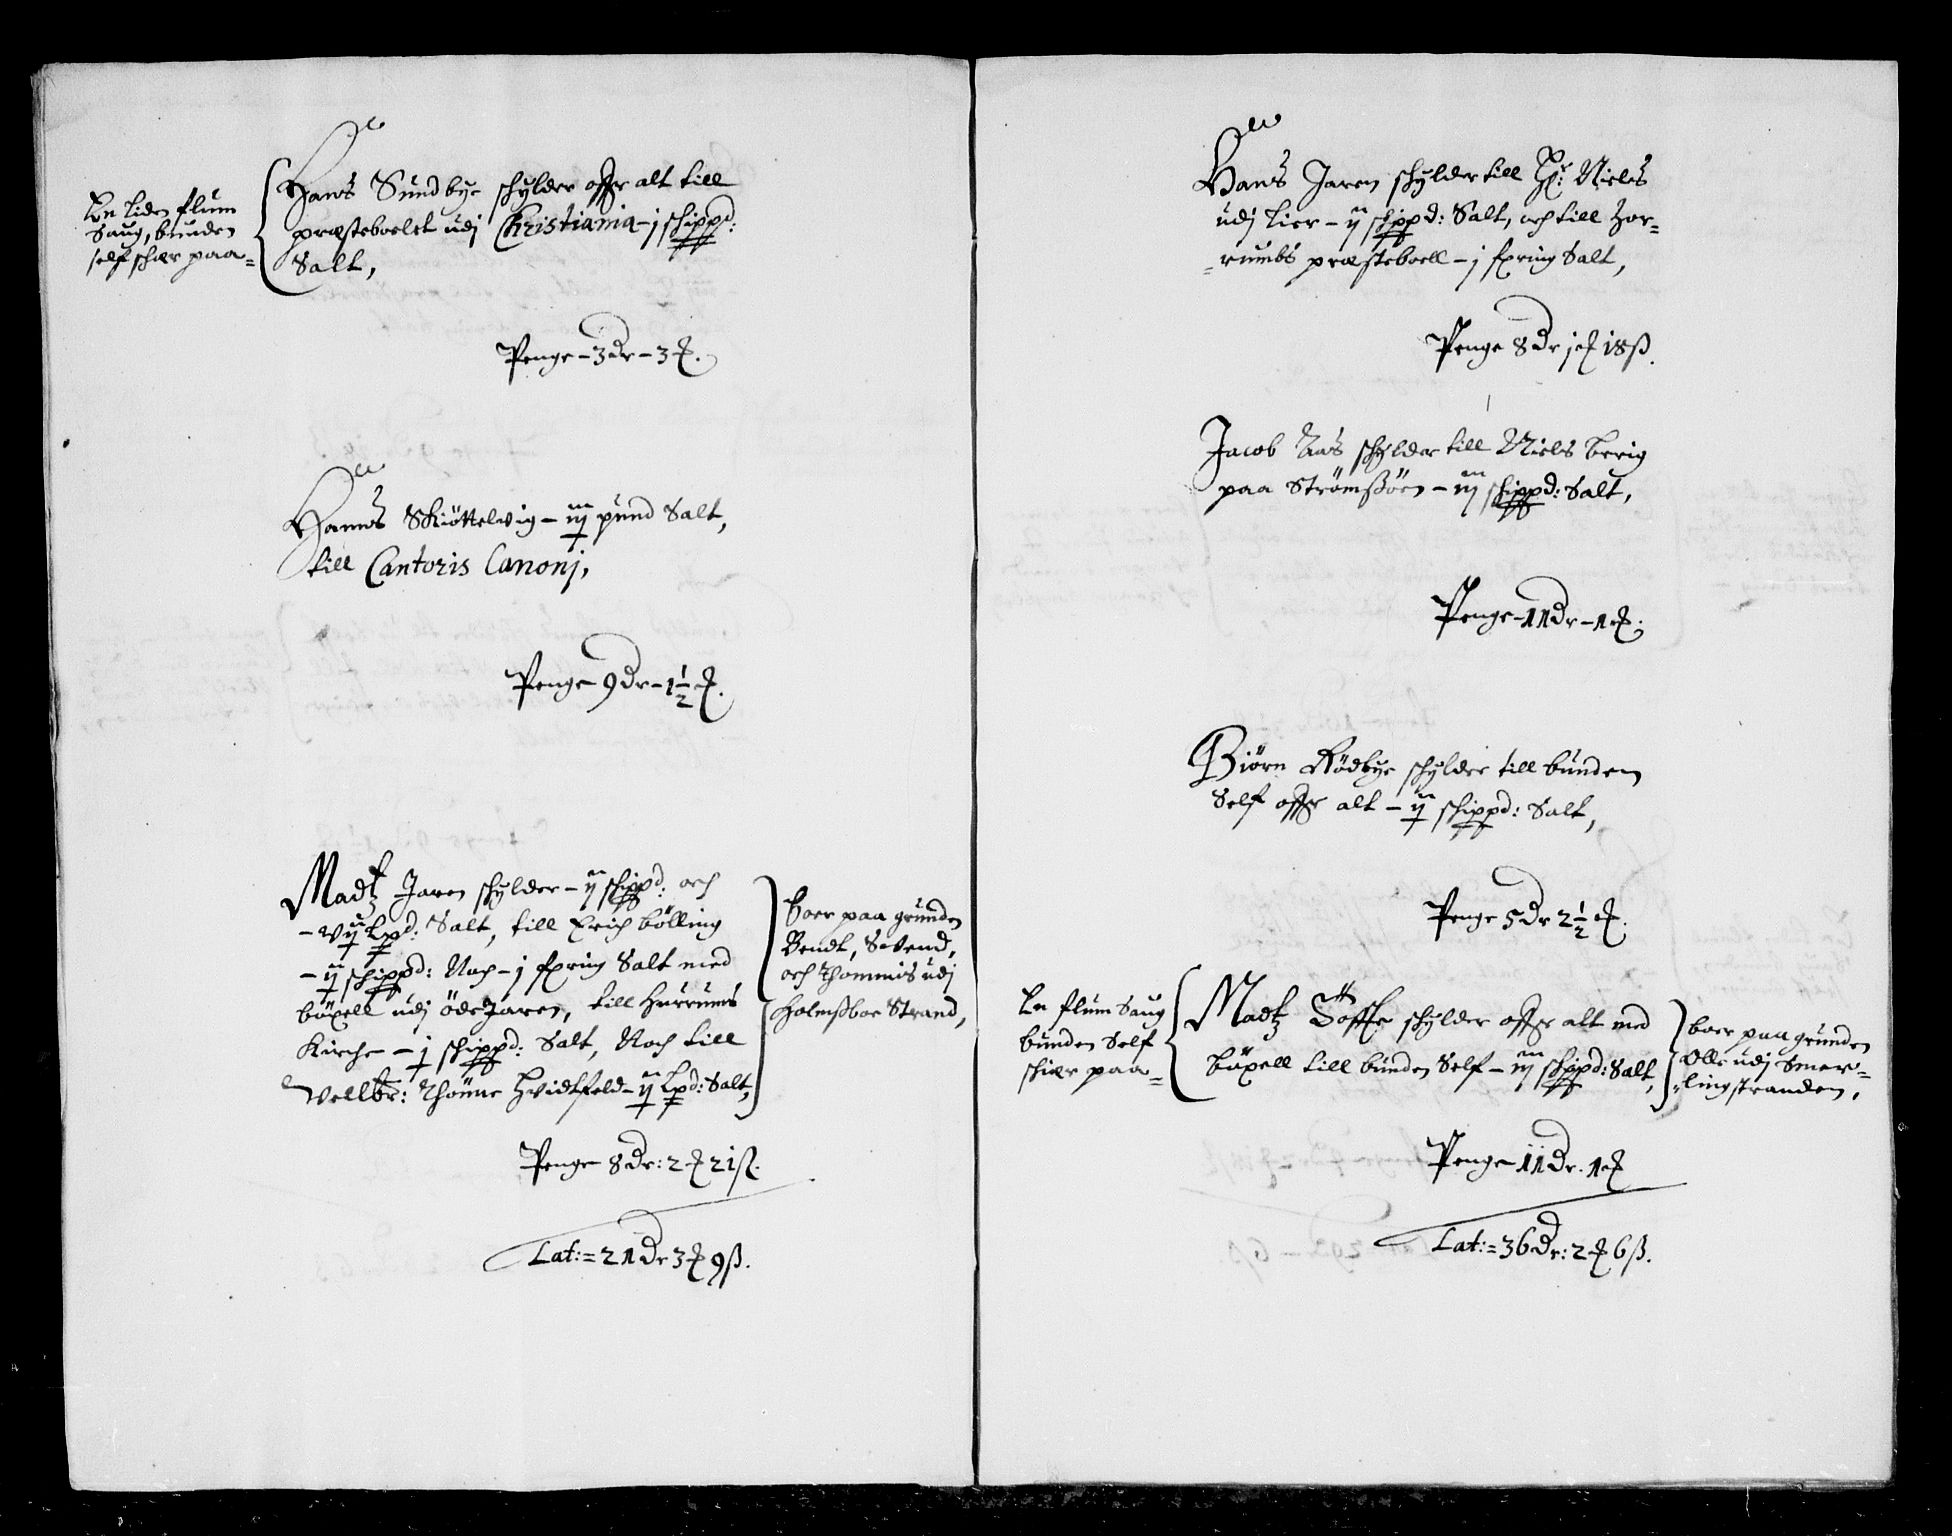 En liden flum
Saug, bunden
self schær paa=
Hans Sundbye schylder offr alt till
præsteboelet udj Christiania - j schippd:
Salt,
Penge - 3 Dr - 3 ℔.
Hanns Skiöttelvig - iij pund Salt,
till Cantoris Canonj,
Penge - 9 Dr - 1½ ℔.
Madtz Jaren schylder - ij schippd: och
- vij Lpd: Salt, till Erich bölling
- ij schippd: Noch - j fering Salt med
böxell udj öde Jaren, till Hurrums
Kirche - j schippd: Salt, Noch till
Vellbr: Thönne Hvidtfeld - ij Lpd: Salt,
boer paa grunden
Bendt, Svend,
och Thommis udj
Holmssboe Strand,
Penge 8 Dr: 2 ℔ 21 ß.
Lat: = 21 Dr 3 ℔ 9 ß.
Hans Jaren schylder till Hr: Niels
udj Lier - ij schippd: Salt, och till Hor=
=rumbs præsteboell - j fering Salt,
Penge 8 Dr j ℔ 18 ß.
Jacob Aas schylder till Niels Berig
paa Strömssöen - iij schippd: Salt,
Penge - 11 Dr - 1 ℔.
Biörn Rödbye schylder till bunden
Self offr alt - ij schippd: Salt,
Penge 5 Dr 2½ ℔.
En flum Saug
bunden Self
schiær paa =
Madtz Töffte schylder offr alt med
böxell till bunden Self - iij schippd: Salt,
boer paa grunden
Olle udj Smer=
=lingstranden,
Penge - 11 Dr. 1 ℔
Lat: = 36 Dr: 2 ℔ 6 ß.